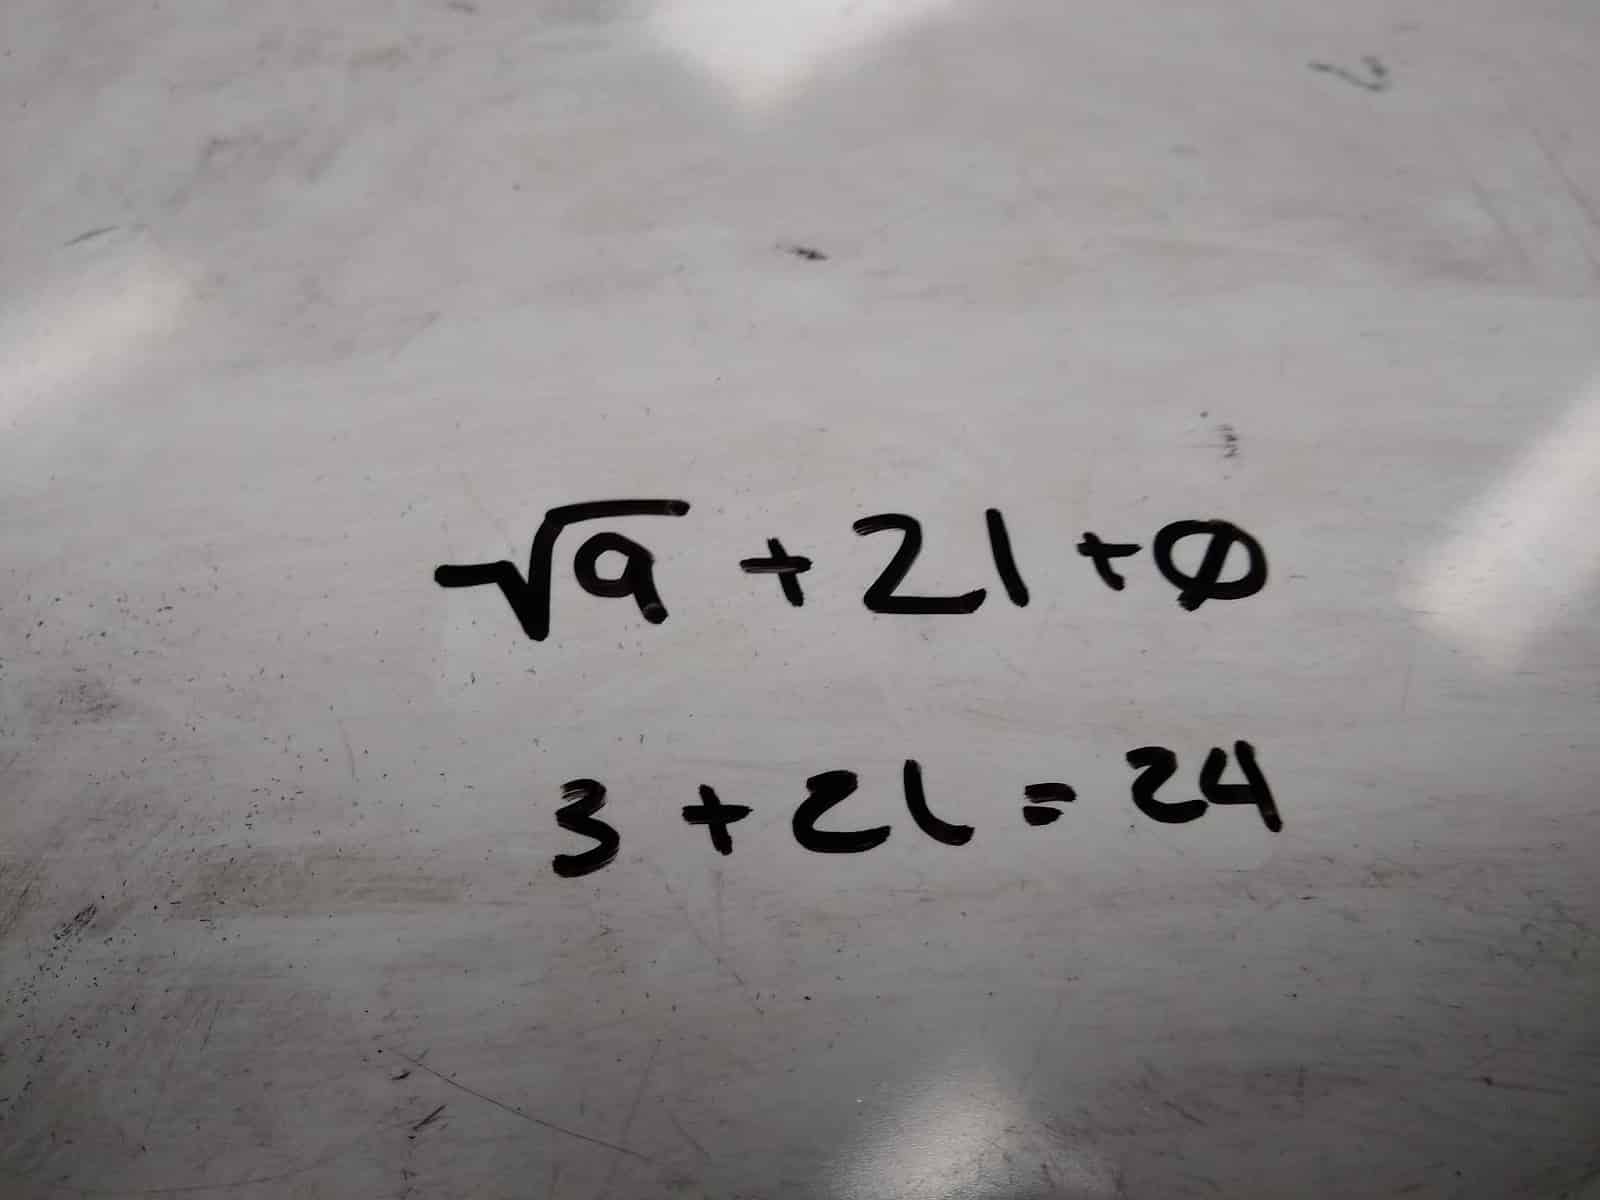 √9 + 21 + 0
3 + 21 = 24